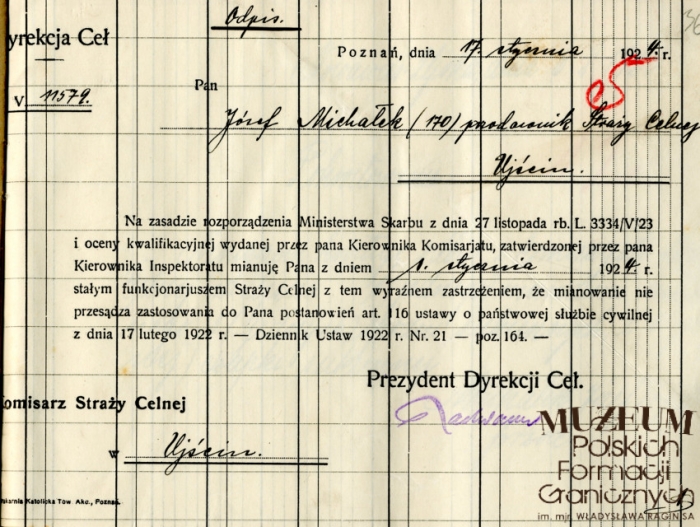 Odpis.
yrekcja Ceł
Poznań, dnia 17. stycznia 1924. r.
V. 11579.
Pan
Józef Michałek (170) przodownik Straży Celnej
Ujściu.
Na zasadzie rozporządzenia Ministerstwa Skarbu z dnia 27 listopada rb. L. 3334/V/23
i oceny kwalifikacyjnej wydanej przez pana Kierownika Komisarjatu, zatwierdzonej przez pana
Kierownika Inspektoratu mianuję Pana z dniem 1. stycznia 1924. r.
stałym funkcjonarjuszem Straży Celnej z tem wyraźnem zastrzeżeniem, że mianowanie nie
przesądza zastosowania do Pana postanowień art. 116 ustawy o państwowej służbie cywilnej
z dnia 17 lutego 1922 r. — Dziennik Ustaw 1922 r. Nr. 21 — poz. 164. —
Prezydent Dyrekcji Ceł.
omisarz Straży Celnej
w Ujściu.
ukarnia Katolicka Tow. Akc., Poznań.
MUZEUM
Polskich
Formacji
Granicznych
im. mjr. WŁADYSŁAWA RAGINISA